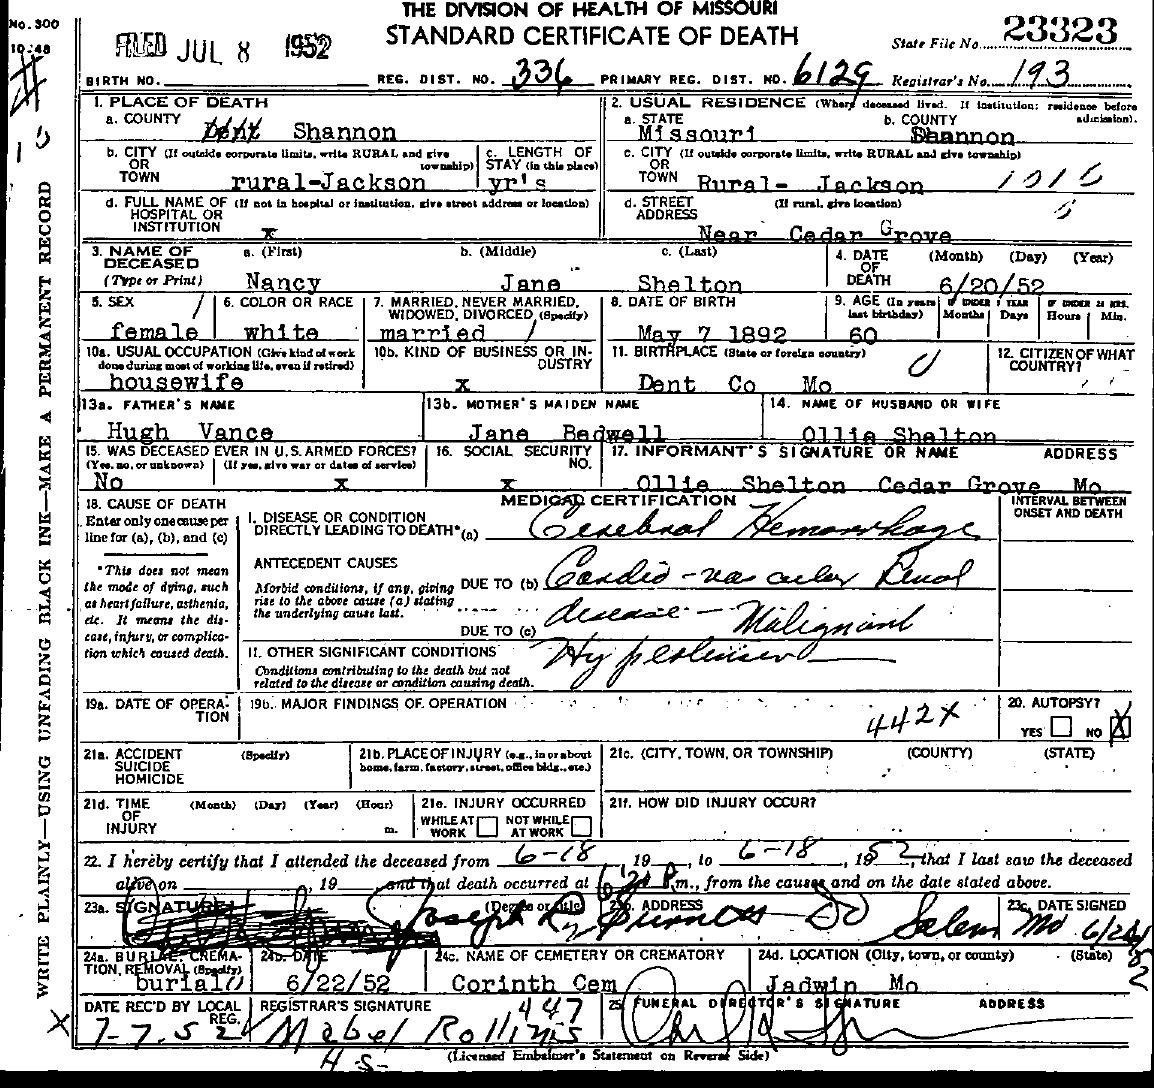 No. 300
10-48
THE DIVISION OF HEALTH OF MISSOURI
STANDARD CERTIFICATE OF DEATH
FILED JUL 8 1952
State File No. 23323
BIRTH NO. REG. DIST. NO. 336 PRIMARY REG. DIST. NO. 6129 Registrar's No. 193
1. PLACE OF DEATH
a. COUNTY Dent Shannon
2. USUAL RESIDENCE (Where deceased lived. If institution: residence before admission).
a. STATE Missouri b. COUNTY Shannon
b. CITY (If outside corporate limits, write RURAL and give township) OR TOWN rural-Jackson
c. LENGTH OF STAY (in this place) yr's
c. CITY (If outside corporate limits, write RURAL and give township) OR TOWN Rural- Jackson
d. FULL NAME OF (If not in hospital or institution, give street address or location) HOSPITAL OR INSTITUTION x
d. STREET ADDRESS (If rural, give location) Near Cedar Grove
3. NAME OF DECEASED (Type or Print) a. (First) Nancy b. (Middle) Jane c. (Last) Shelton
4. DATE OF DEATH (Month) (Day) (Year) 6/20/52
5. SEX female
6. COLOR OR RACE white
7. MARRIED, NEVER MARRIED, WIDOWED, DIVORCED (Specify) married
8. DATE OF BIRTH May 7 1892
9. AGE (In years last birthday) 60 IF UNDER 1 YEAR Months Days IF UNDER 24 HRS. Hours Min.
10a. USUAL OCCUPATION (Give kind of work done during most of working life, even if retired) housewife
10b. KIND OF BUSINESS OR INDUSTRY x
11. BIRTHPLACE (State or foreign country) Dent Co Mo
12. CITIZEN OF WHAT COUNTRY?
13a. FATHER'S NAME Hugh Vance
13b. MOTHER'S MAIDEN NAME Jane Bedwell
14. NAME OF HUSBAND OR WIFE Ollie Shelton
15. WAS DECEASED EVER IN U.S. ARMED FORCES? (Yes, no, or unknown) No (If yes, give war or dates of service) x
16. SOCIAL SECURITY NO. x
17. INFORMANT'S SIGNATURE OR NAME ADDRESS Ollie Shelton Cedar Grove Mo
18. CAUSE OF DEATH
Enter only one cause per line for (a), (b), and (c)
*This does not mean the mode of dying, such as heart failure, asthenia, etc. It means the disease, injury, or complication which caused death.
MEDICAL CERTIFICATION
INTERVAL BETWEEN ONSET AND DEATH
I. DISEASE OR CONDITION DIRECTLY LEADING TO DEATH* (a) Cerebral Hemorrhage
ANTECEDENT CAUSES
Morbid conditions, if any, giving rise to the above cause (a) stating the underlying cause last.
DUE TO (b) Cardio-vascular Renal
DUE TO (c) disease - Malignant
Hypertension
II. OTHER SIGNIFICANT CONDITIONS
Conditions contributing to the death but not related to the disease or condition causing death.
19a. DATE OF OPERATION
19b. MAJOR FINDINGS OF OPERATION
442X
20. AUTOPSY? YES NO X
21a. ACCIDENT SUICIDE HOMICIDE (Specify)
21b. PLACE OF INJURY (e.g., in or about home, farm, factory, street, office bldg., etc.)
21c. (CITY, TOWN, OR TOWNSHIP) (COUNTY) (STATE)
21d. TIME OF INJURY (Month) (Day) (Year) (Hour) m.
21e. INJURY OCCURRED WHILE AT WORK NOT WHILE AT WORK
21f. HOW DID INJURY OCCUR?
22. I hereby certify that I attended the deceased from 6-18, 19 , to 6-18, 1952, that I last saw the deceased
alive on , 19 and that death occurred at m., from the causes and on the date stated above.
23a. SIGNATURE (Degree or title) Joseph R. DO
23b. ADDRESS Salem Mo
23c. DATE SIGNED
24a. BURIAL, CREMATION, REMOVAL (Specify) burial
24b. DATE 6/22/52
24c. NAME OF CEMETERY OR CREMATORY Corinth Cem
24d. LOCATION (City, town, or county) (State) Jadwin Mo
DATE REC'D BY LOCAL REG. 7-7-52
REGISTRAR'S SIGNATURE Mabel Rollins
447
25. FUNERAL DIRECTOR'S SIGNATURE ADDRESS
(Licensed Embalmer's Statement on Reverse Side)
WRITE PLAINLY—USING UNFADING BLACK INK—MAKE A PERMANENT RECORD